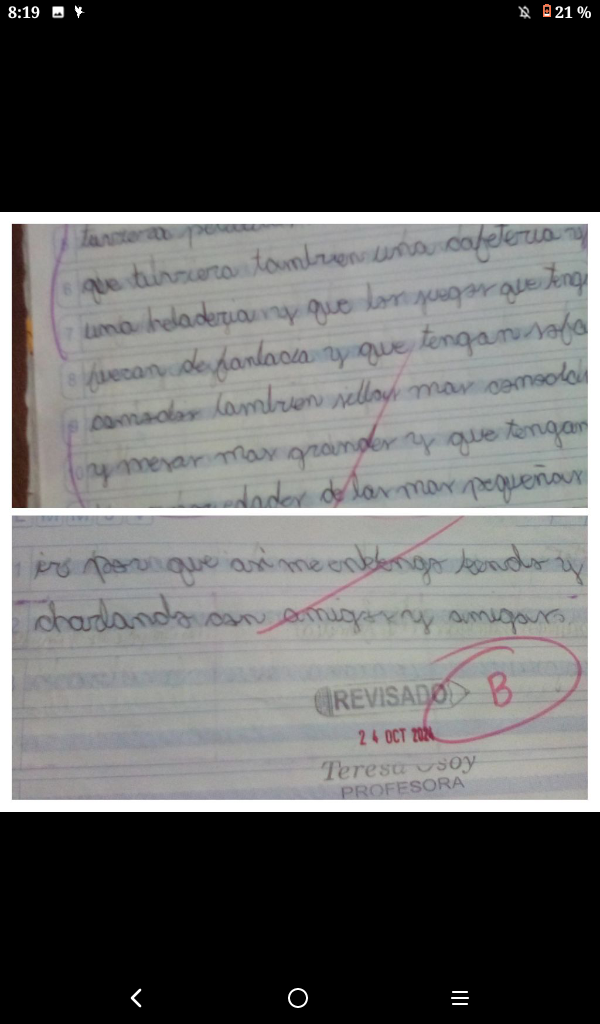 8:19 21 %
6 que tubiera tambien una cafeteria y
7 una heladeria y que los juegos que teng
8 fueran de fantacia y que tengan sofa
comodos tambien sillas mas comodas
y mesas mas grandes y que tengan
de las mas pequeñas
1 es por que asi me entengo leendo y
2 charlando con amigos y amigas.
REVISADO B
24 OCT 2024
Teresa
PROFESORA